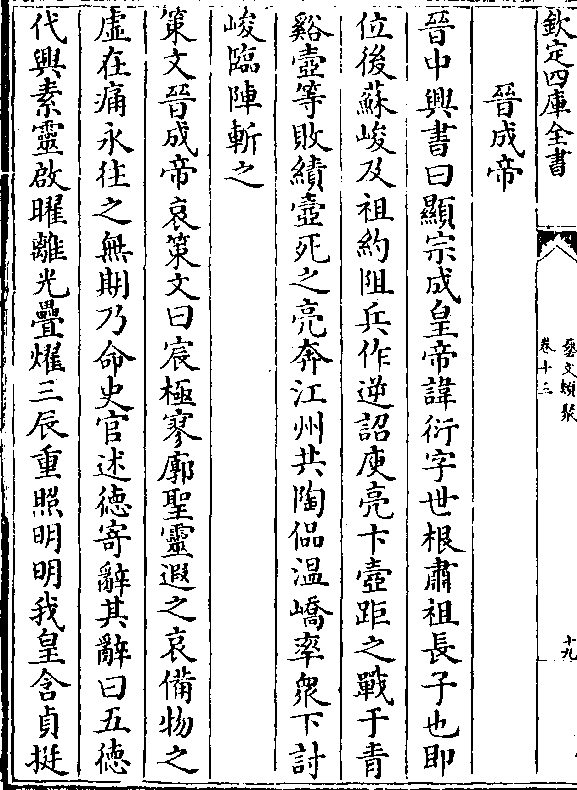 欽定四庫全書
藝文類聚
卷十三
十九
晉成帝
晉中興書曰顯宗成皇帝諱衍字世根肅祖長子也即
位後蘇峻及祖約阻兵作逆詔庾亮卞壺距之戰于青
谿壺等敗績壺死之亮奔江州共陶侃温嶠率衆下討
峻臨陣斬之
策文晉成帝哀策文曰宸極寥廓聖靈遐之哀備物之
虛在痛永往之無期乃命史官述德寄辭其辭曰五德
代興素靈啟曜離光疊燿三辰重照明明我皇含貞挺